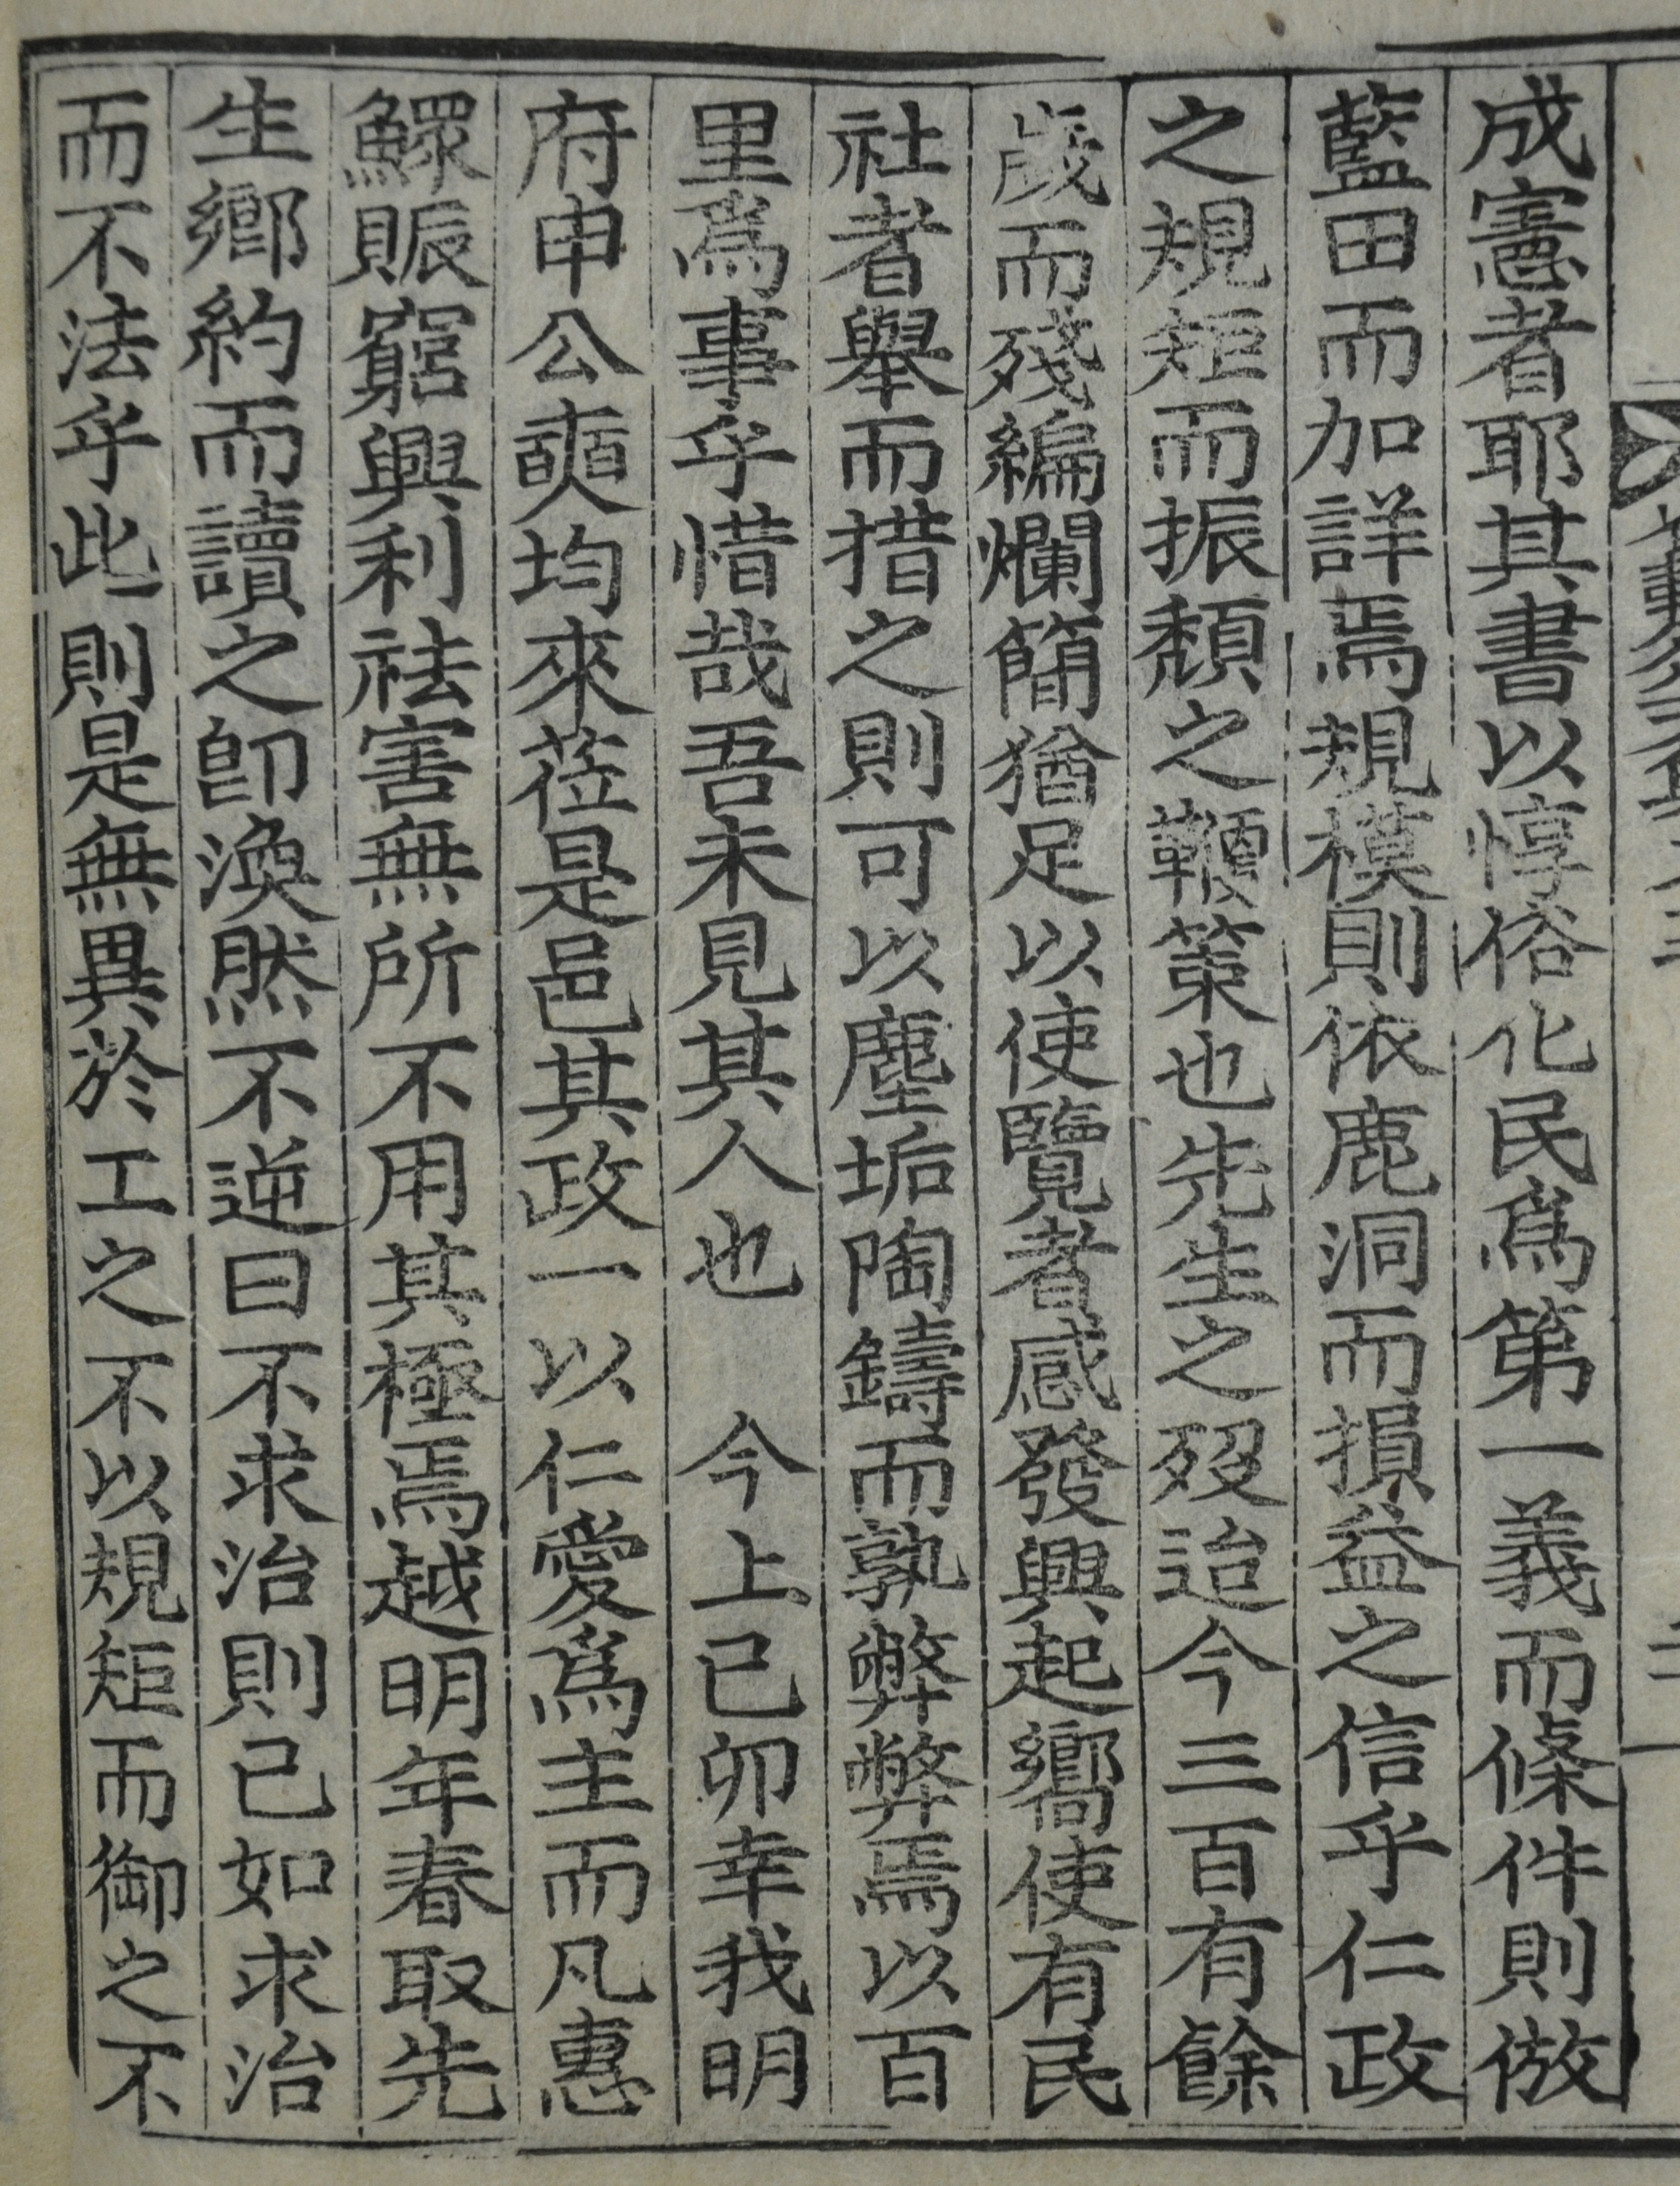 成憲者耶其書以惇俗化民爲第一義而條件則倣
藍田而加詳焉規模則依鹿洞而損益之信乎仁政
之規矩而振頹之鞭策也先生之歿迨今三百有餘
歲而殘編爛簡猶足以使覽者感發興起嚮使有民
社者舉而措之則可以塵垢陶鑄而孰弊弊焉以百
里爲事乎惜哉吾未見其人也 今上己卯幸我明
府申公奭均來莅是邑其政一以仁愛爲主而凡惠
鰥賑窮興利祛害無所不用其極焉越明年春取先
生鄕約而讀之卽渙然不逆曰不求治則已如求治
而不法乎此則是無異於工之不以規矩而御之不